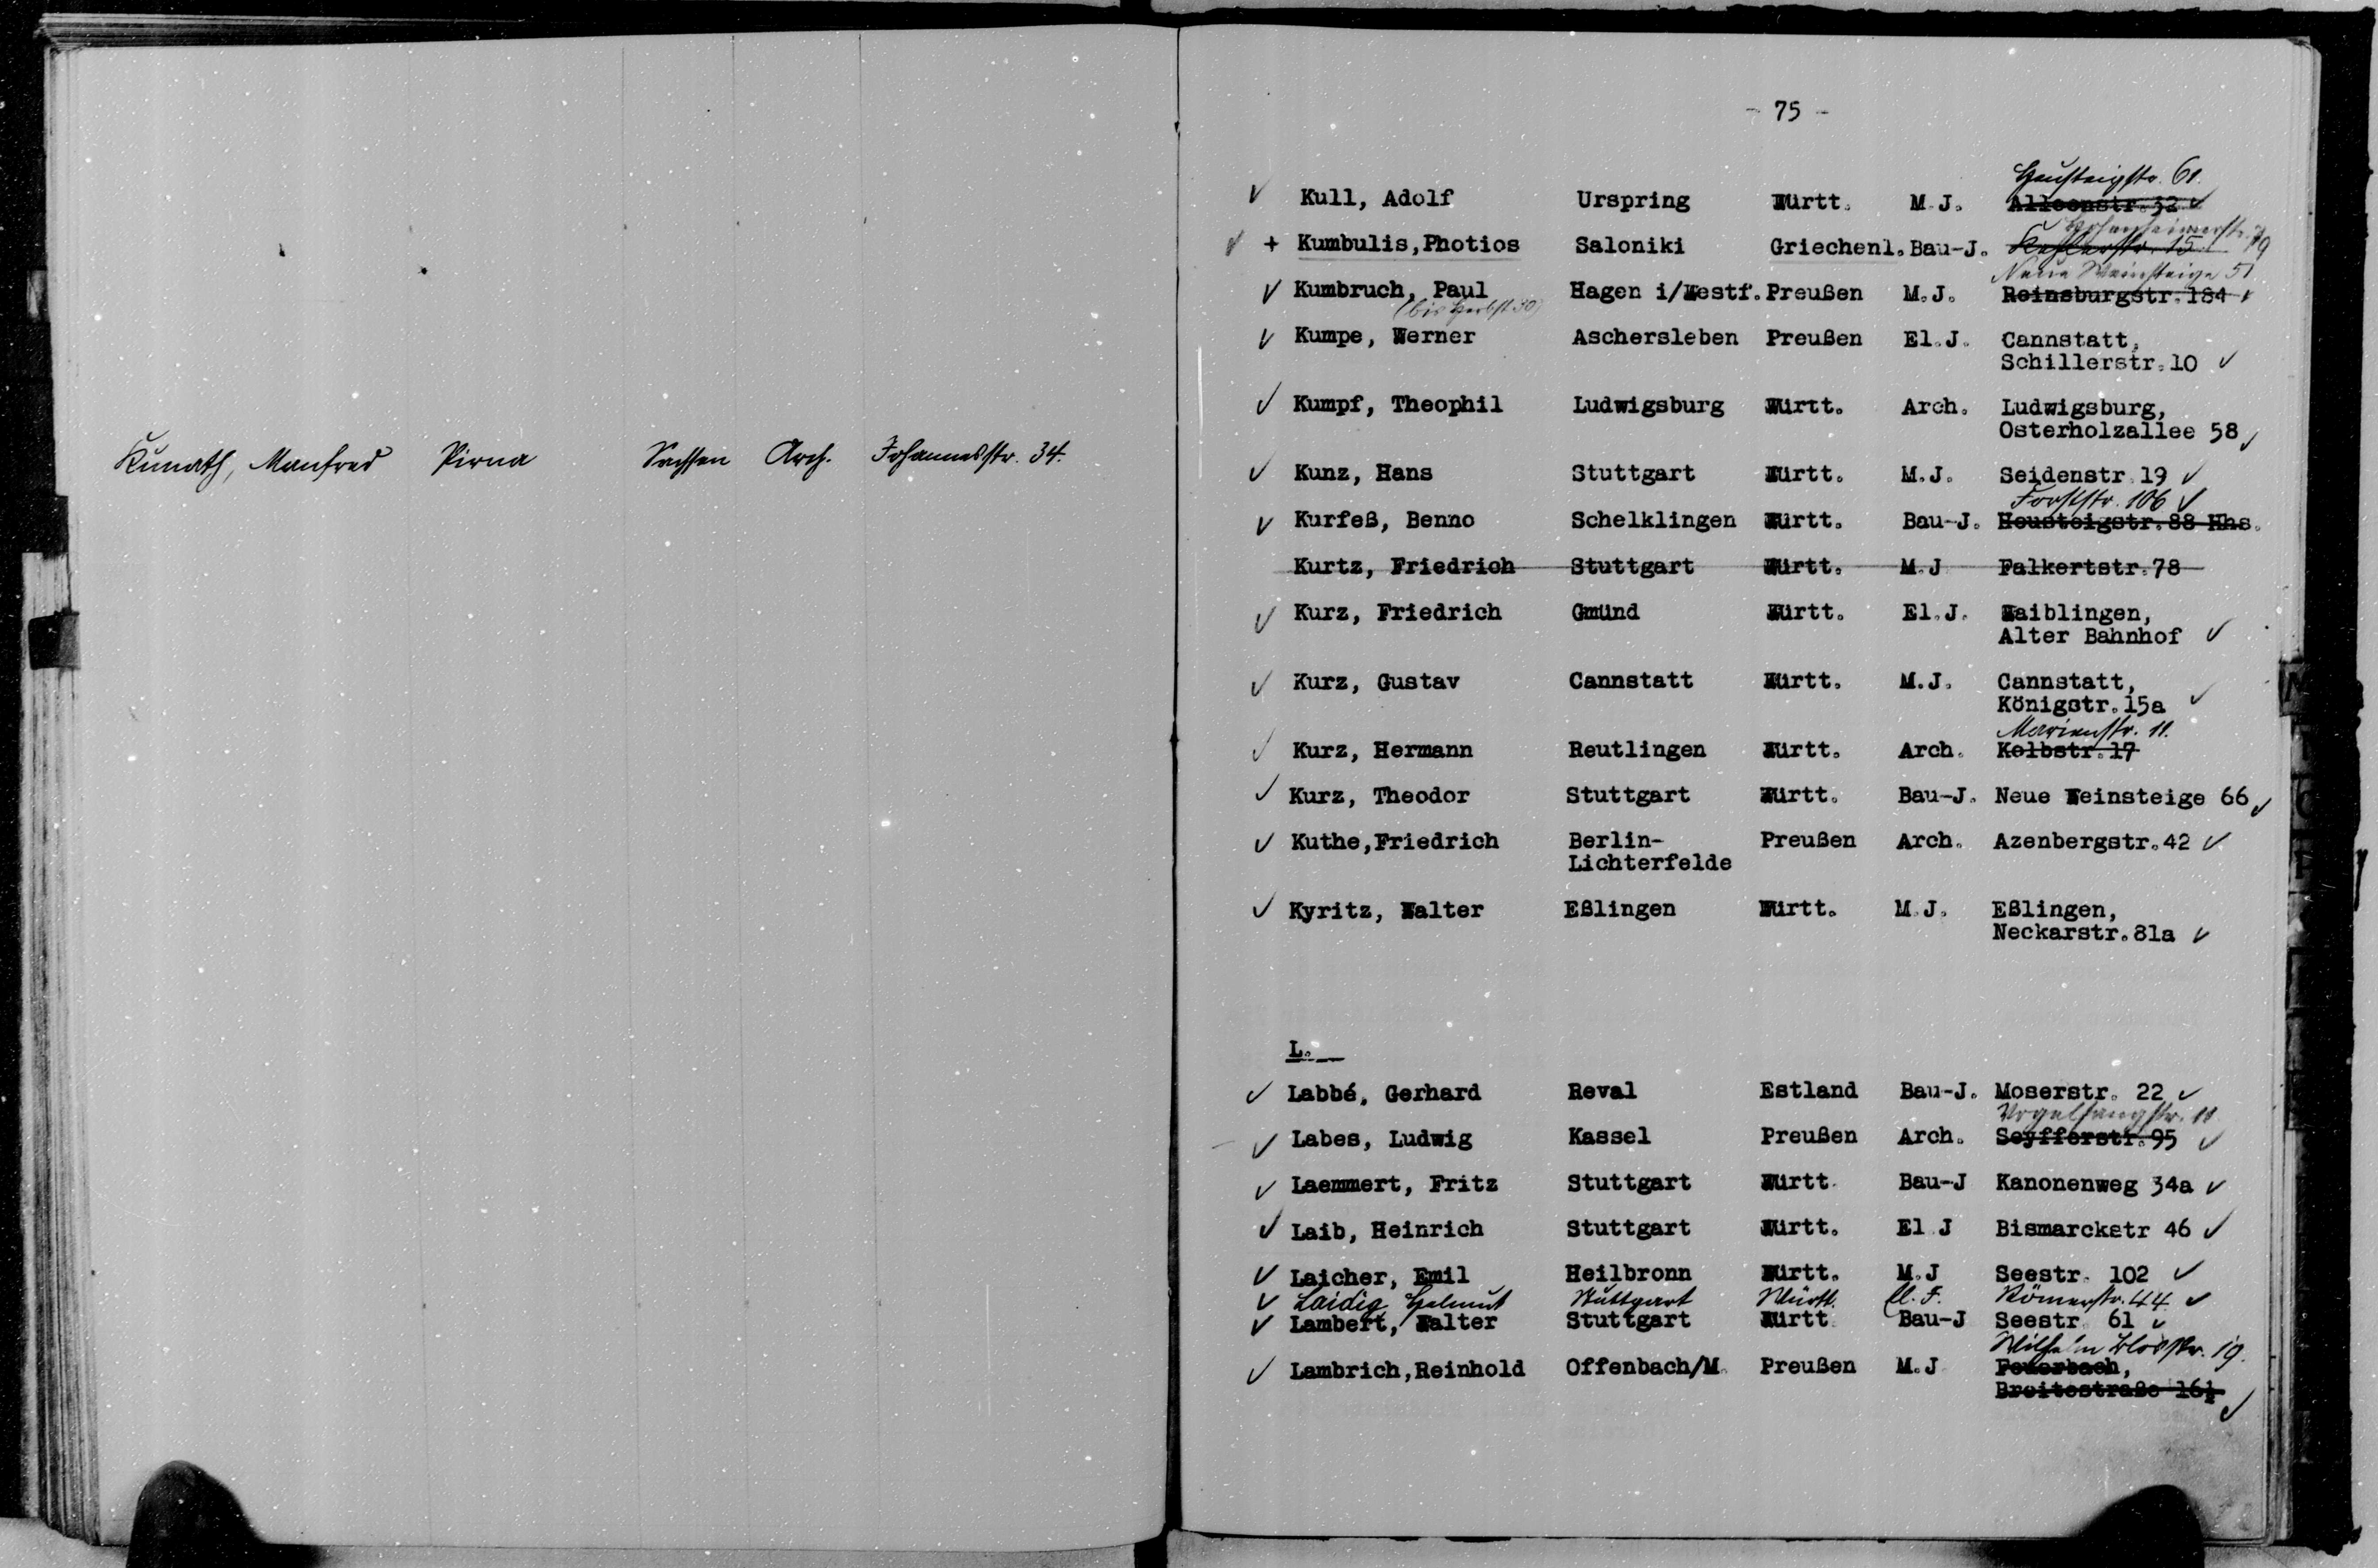 Kunath, Manfred Pirna Sachsen Arch. Johannesstr. 34.
- 75 -
Heusteigstr. 61.
Kull, Adolf Urspring Württ. M.J. Alleenstr.32
Hohenheimerstr. 79
+ Kumbulis,Photios Saloniki Griechenl. Bau-J. 15
Neue Weinsteige 51
Kumbruch, Paul Hagen i/Westf. Preußen M.J. Reinsburgstr.184
(bis Herbst 30)
Kumpe, Werner Aschersleben Preußen El.J. Cannstatt,
Schillerstr.10
Kumpf, Theophil Ludwigsburg Württ. Arch. Ludwigsburg,
Osterholzallee 58
Kunz, Hans Stuttgart Württ. M.J. Seidenstr.19
Forststr. 106
Kurfeß, Benno Schelklingen Württ. Bau-J. Heusteigstr.88 Hhs.
Kurtz, Friedrich Stuttgart Württ. M.J Falkertstr.78
Kurz, Friedrich Gmünd Württ. El.J. Waiblingen,
Alter Bahnhof
Kurz, Gustav Cannstatt Württ. M.J. Cannstatt,
Königstr.15a
Marienstr. 11.
Kurz, Hermann Reutlingen Württ. Arch. Kolbstr.17
Kurz, Theodor Stuttgart Württ. Bau-J. Neue Weinsteige 66
Kuthe,Friedrich Berlin- Preußen Arch. Azenbergstr.42
Lichterfelde
Kyritz, Walter Eßlingen Württ. M.J. Eßlingen,
Neckarstr.81a
L.
Labbé, Gerhard Reval Estland Bau-J. Moserstr. 22
Vogelsangstr. 11.
Labes, Ludwig Kassel Preußen Arch. Seyfferstr.95
Laemmert, Fritz Stuttgart Württ. Bau-J Kanonenweg 34a
Laib, Heinrich Stuttgart Württ. El J Bismarckstr 46
Laicher, Emil Heilbronn Württ. M.J Seestr. 102
Laidig, Helmut Stuttgart Württ. El. J. Römerstr. 44
Lambert, Walter Stuttgart Württ Bau-J Seestr. 61
Wilhelm Blosstr. 19.
Lambrich,Reinhold Offenbach/M. Preußen M.J Feuerbach,
Breitestraße 16½